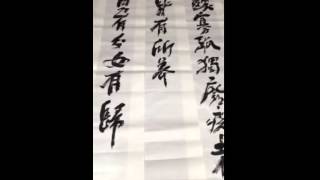 鰥寡孤獨廢疾者
皆有所養
男有分女有歸